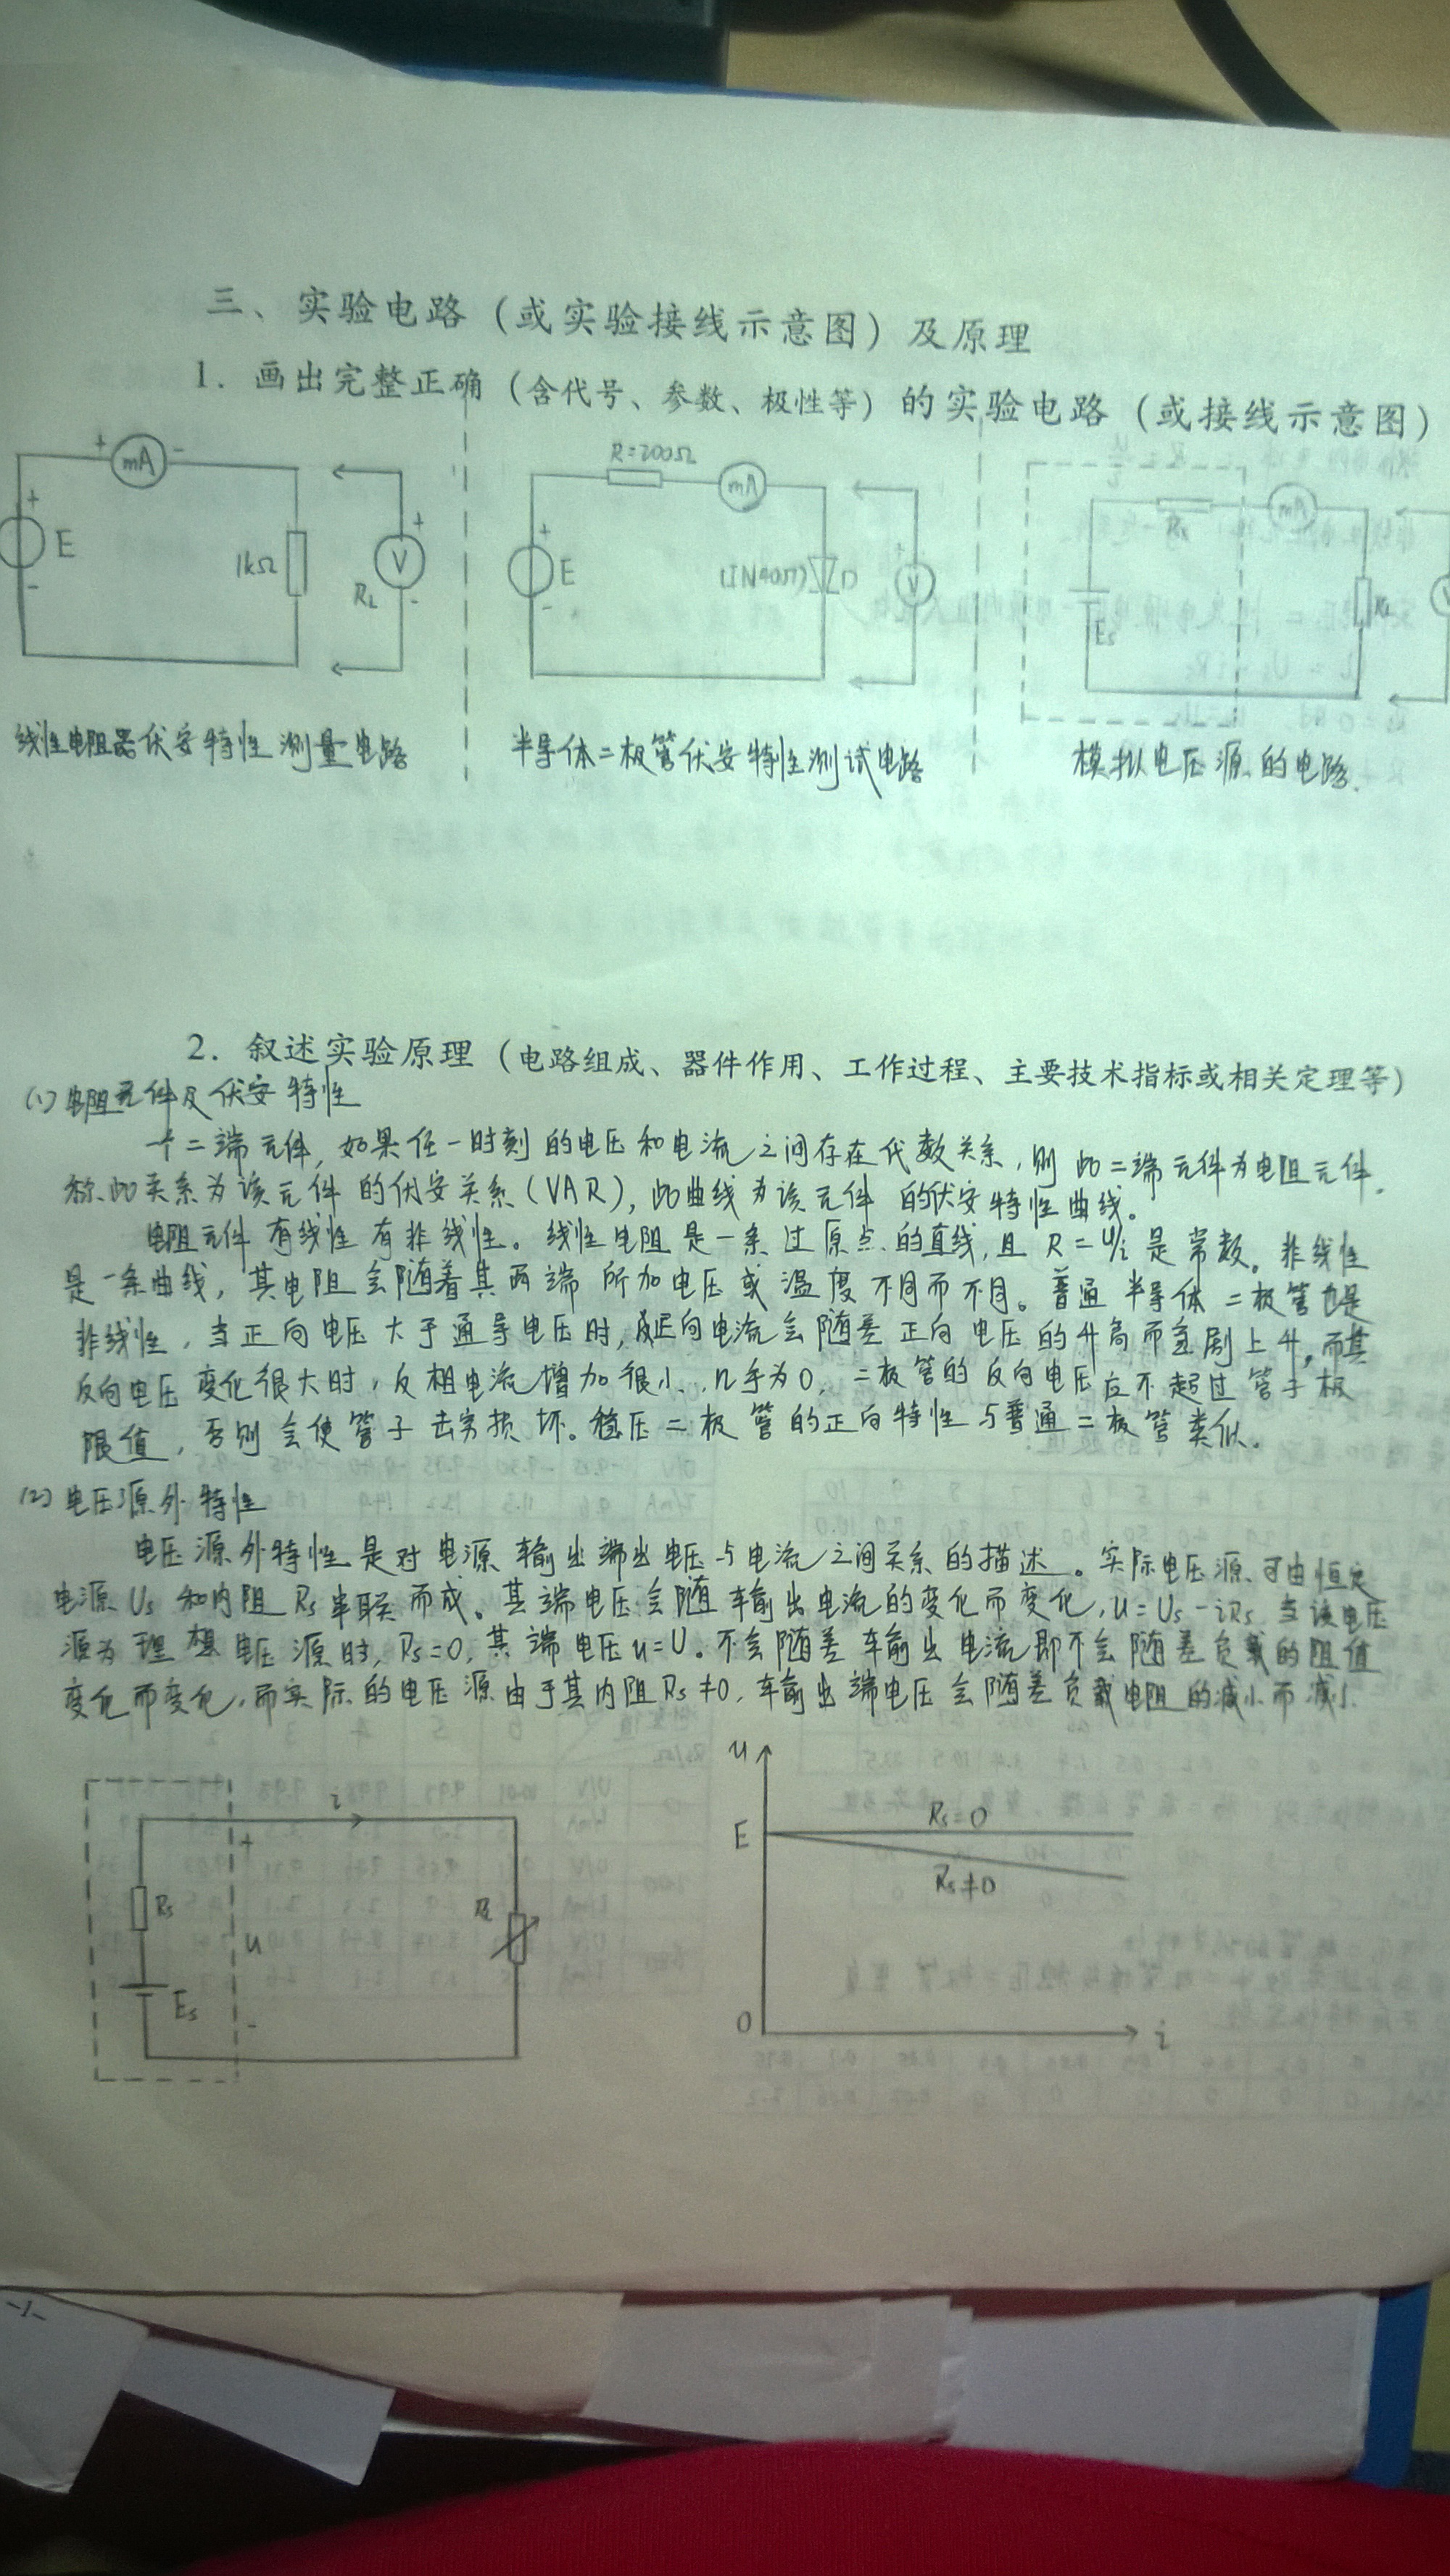 三、实验电路（或实验接线示意图）及原理
1. 画出完整正确（含代号、参数、极性等）的实验电路（或接线示意图）
+ mA -
+ E -
1kΩ
RL
+ V -
R=200Ω
mA
+ E -
(IN4007) D
+ V
Rs
mA
Es
RL
V
线性电阻器伏安特性测量电路
半导体二极管伏安特性测试电路
模拟电压源的电路.
2. 叙述实验原理（电路组成、器件作用、工作过程、主要技术指标或相关定理等）
(1) 电阻元件及伏安特性
一个二端元件, 如果任一时刻的电压和电流之间存在代数关系, 则此二端元件为电阻元件.
称此关系为该元件的伏安关系(VAR), 此曲线为该元件的伏安特性曲线。
电阻元件有线性有非线性。线性电阻是一条过原点的直线, 且 R=u/i 是常数. 非线性
是一条曲线, 其电阻会随着其两端所加电压或温度不同而不同。普通半导体二极管也是
非线性, 当正向电压大于通导电压时, 正向电流会随着正向电压的升高而急剧上升, 而其
反向电压变化很大时, 反相电流增加很小, 几乎为0, 二极管的反向电压应不超过管子极
限值, 否则会使管子击穿损坏。稳压二极管的正向特性与普通二极管类似.
(2) 电压源外特性
电压源外特性是对电源输出端出电压与电流之间关系的描述。实际电压源可由恒定
电源 Us 和内阻 Rs 串联而成。其端电压会随输出电流的变化而变化, u=Us-iRs 当该电压
源为理想电压源时, Rs=0, 其端电压u=U。不会随着输出电流即不会随着负载的阻值
变化而变化, 而实际的电压源由于其内阻Rs≠0, 输出端电压会随着负载电阻的减小而减小.
i
+
Rs
u
RL
Es
-
u
E
Rs=0
Rs≠0
0
i